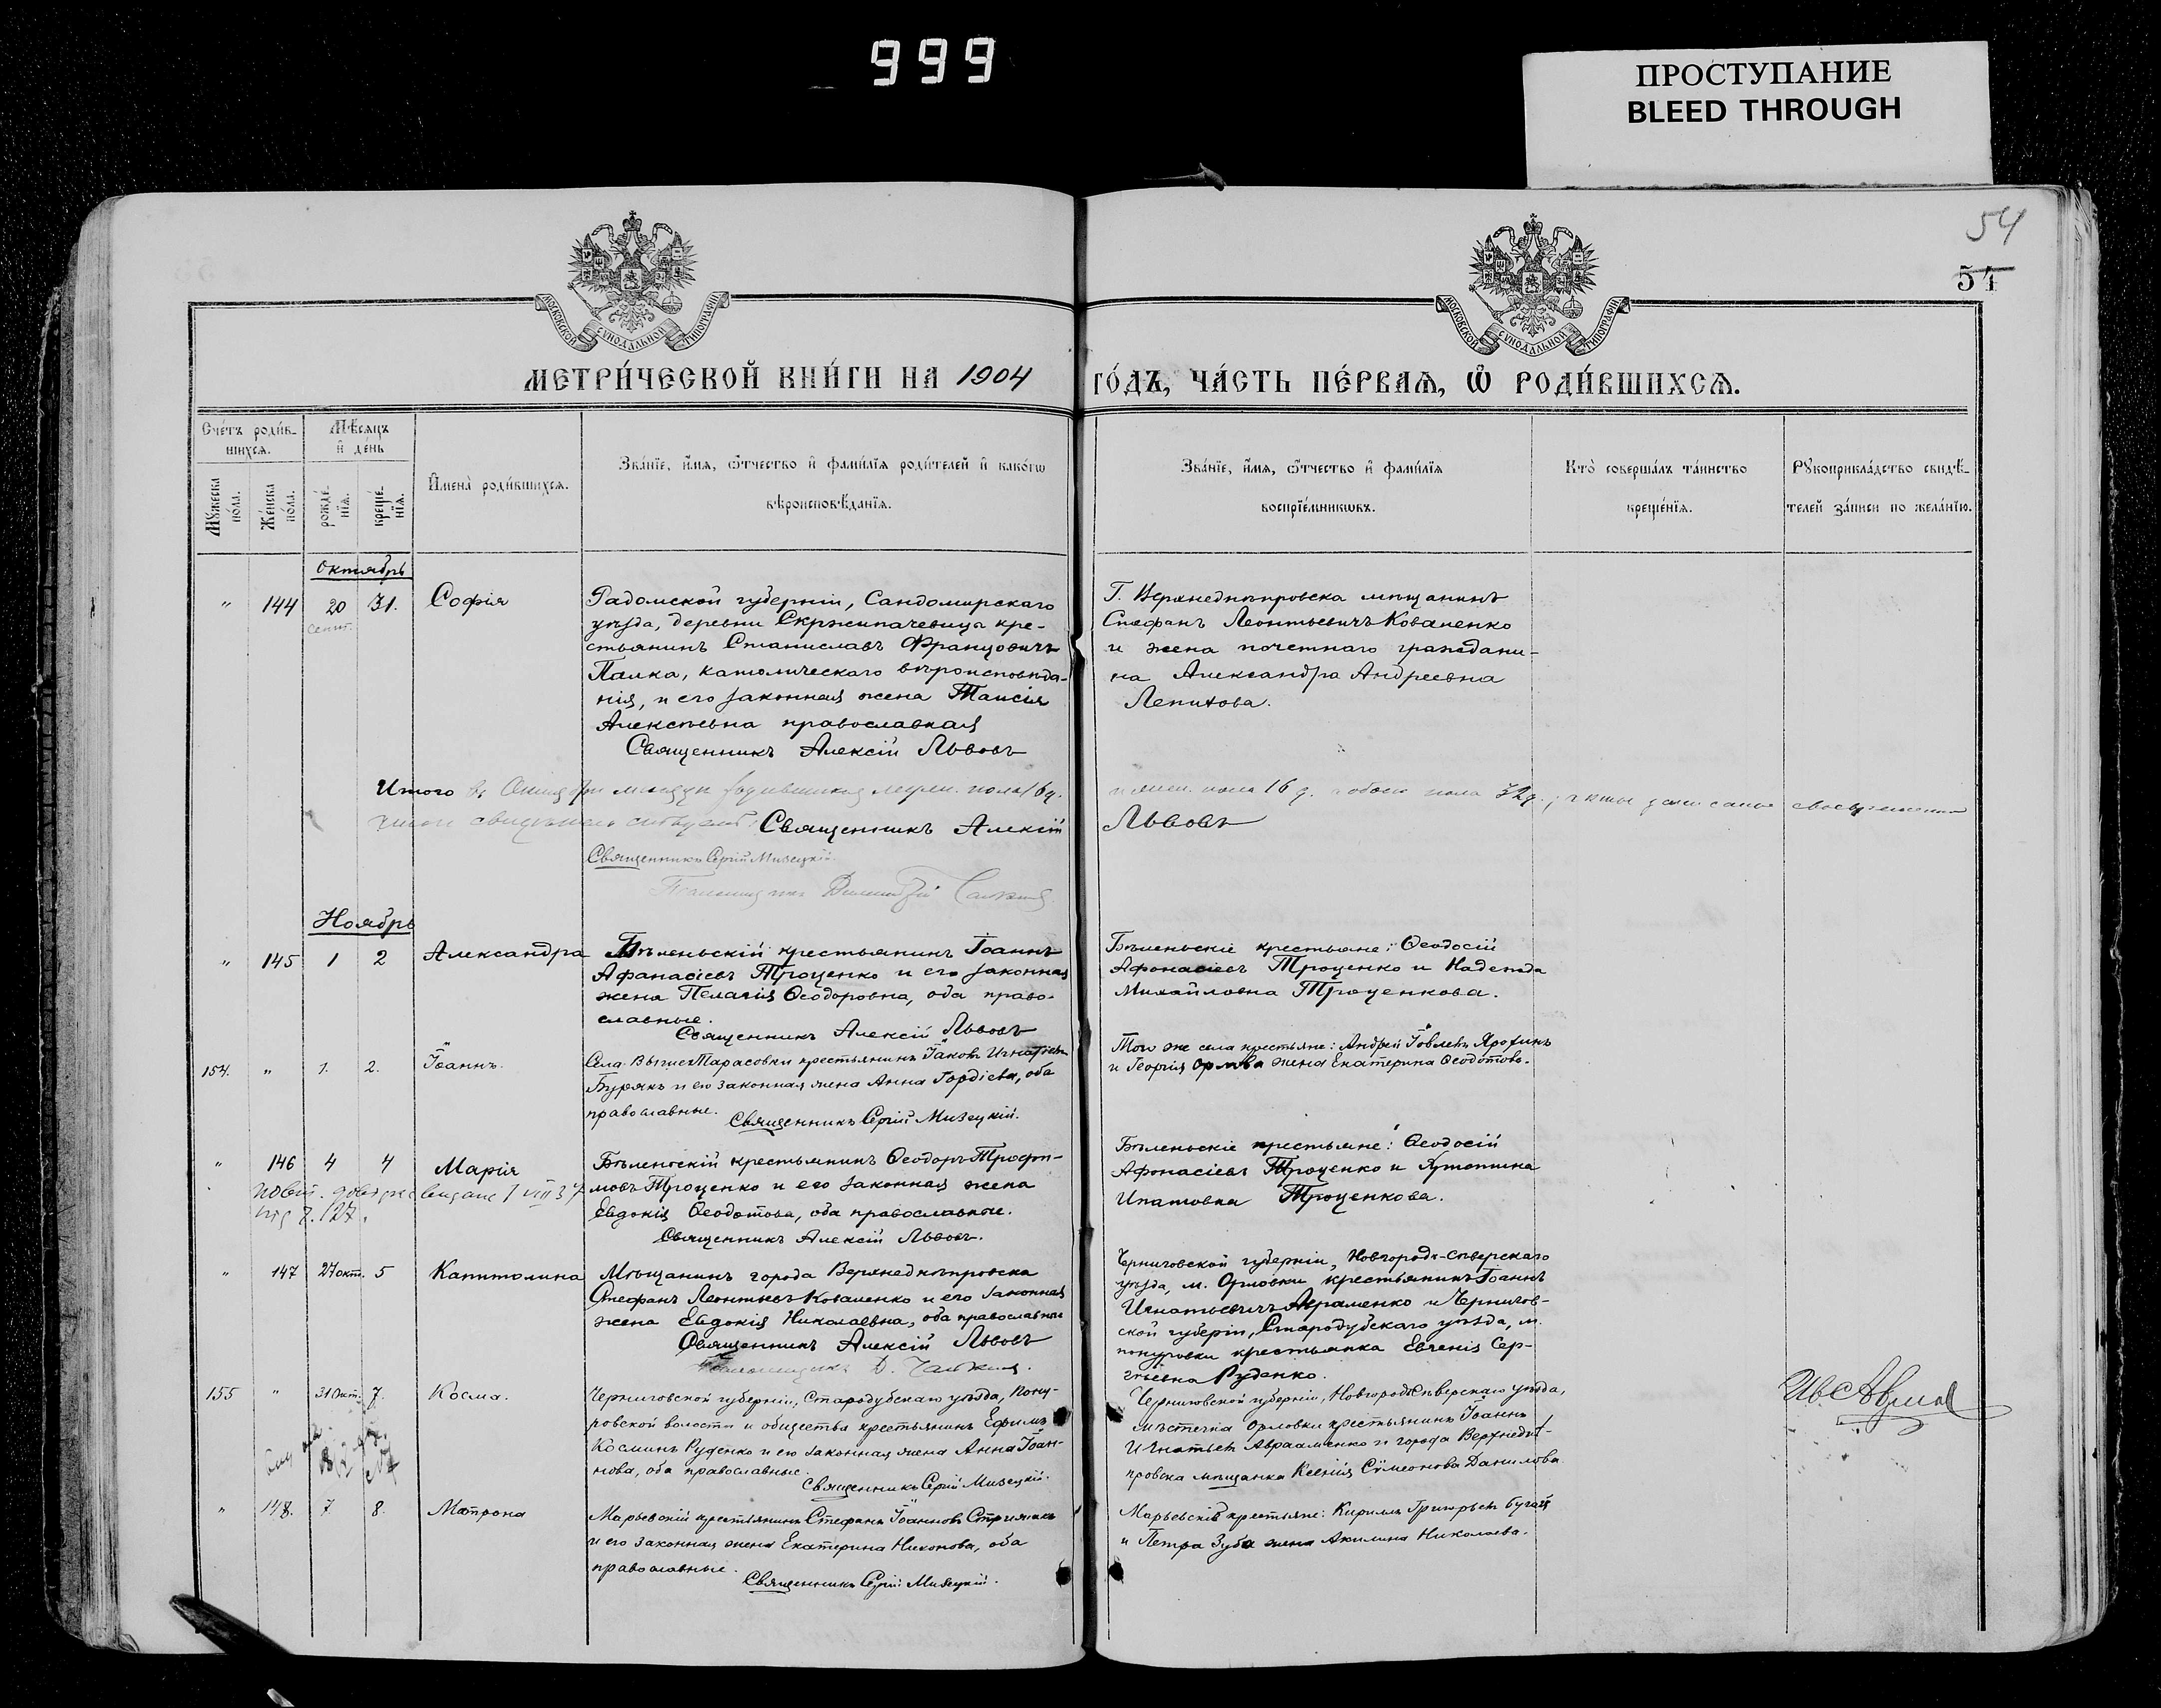 999
ПРОСТУПАНИЕ
BLEED THROUGH
54
54
МОСКОВСКОЙ СѴНОДАЛЬНОЙ ТИПОГРАФІИ
МОСКОВСКОЙ СѴНОДАЛЬНОЙ ТИПОГРАФІИ
МЕТРИ́ЧЕСКОЙ КНИ́ГИ НА 1904 ГО́ДЪ, ЧА́СТЬ ПЕ́РВАѦ, Ѡ҆ РОДИ́ВШИХСѦ.
Сче́тъ роди́в-
шихсѧ.
Мѣ́сѧцъ
и҆ де́нь
Мꙋ́жеска по́ла.
Же́нска по́ла.
рожде́-нїѧ.
креще́-нїѧ.
И҆мена̀ роди́вшихсѧ.
Зва́нїе, и҆́мѧ, ѻ҆́тчество и҆ фами́лїѧ роди́телей и҆ како́гѡ
вѣроисповѣ́данїѧ.
Зва́нїе, и҆́мѧ, ѻ҆́тчество и҆ фами́лїѧ
воспрїе́мникѡвъ.
Кто̀ соверша́лъ та́инство
креще́нїѧ.
Рꙋкоприкла́дство свидѣ́-
телей за́писи по жела́нїю.
Октябрь
" 144 20 31. Софія
сент.
Радомской губерніи, Сандомирскаго
уѣзда, деревни Скржипачевицы кре-
стьянинъ Станиславъ Францовичъ
Палка, католическаго вѣроисповѣда-
нія, и его законная жена Таисія
Алексѣевна православная
Священникъ Алексій Львовъ
Г. Верхнеднѣпровска мѣщанинъ
Стефанъ Леонтьевичъ Коваленко
и жена почетнаго граждани-
на Александра Андреевна
Лепихова.
Итого въ Октябрѣ мѣсяцѣ родившихся мужск. пола 16 д. и женск. пола 16 д. а обоего пола 32 д.
Священникъ Алексій Львовъ
Священникъ Сергій Мизецкій.
Ноябрь
" 145 1 2 Александра
Бѣленьскій крестьянинъ Іоаннъ
Афанасіевъ Троценко и его законная
жена Пелагія Ѳеодоровна, оба право-
славные.
Священникъ Алексій Львовъ
Бѣленьскіе крестьяне: Ѳеодосій
Афонасіевъ Троценко и Надежда
Михайловна Троценкова.
154. " 1. 2. Іоаннъ.
Села Тарасовки крестьянинъ Іаковъ Игнатіевъ
Бурякъ и его законная жена Анна Гордіева, оба
православные.
Священникъ Сергій Мизецкій.
Того же села крестьяне: Андрей
и Георгія Орлова жена Екатерина Ѳеодотова.
" 146 4 4 Марія
Бѣленьскій крестьянинъ Ѳеодоръ Трофи-
мовъ Троценко и его законная жена
Евдокія Ѳеодотова, оба православные.
Священникъ Алексій Львовъ.
Бѣленьскіе крестьяне: Ѳеодосій
Афонасіевъ Троценко и
Ипатовна Троценкова.
" 147 27 окт. 5 Капитолина
Мѣщанинъ города Верхнеднѣпровска
Стефанъ Леонтьевъ Коваленко и его законная
жена Евдокія Николаевна, оба православные
Священникъ Алексій Львовъ
Черниговской губерніи, Новгородъ-Сѣверскаго
уѣзда, м. Орловки крестьянинъ Іоаннъ
Игнатьевичъ Авраменко и Чернигов-
ской губерніи, Стародубскаго уѣзда, м.
понуровки крестьянка Евгенія Сер-
гѣевна Руденко.
155 " 31 Окт. 7. Косма.
Черниговской губерніи, Стародубскаго уѣзда, Пону-
ровской волости и общества крестьянинъ Ефимъ
Косминъ Руденко и его законная жена Анна Іоан-
нова, оба православные.
Священникъ Сергій Мизецкій.
Черниговской губерніи, Новгородсѣверскаго уѣзда,
мѣстечка Орловки крестьянинъ Іоаннъ
Игнатьевъ Авраменко и города Верхнеднѣ-
провска мѣщанка Ксенія Сѵмеонова Данилова
" 148. 7. 8. Матрона
Марьевскій крестьянинъ Стефанъ Іоанновъ Стрижакъ
и его законная жена Екатерина Никонова, оба
православные.
Священникъ Сергій Мизецкій.
Марьевскіе крестьяне: Кириллъ Григорьевъ Бугай
и Петра Зуба жена Акилина Николаева.